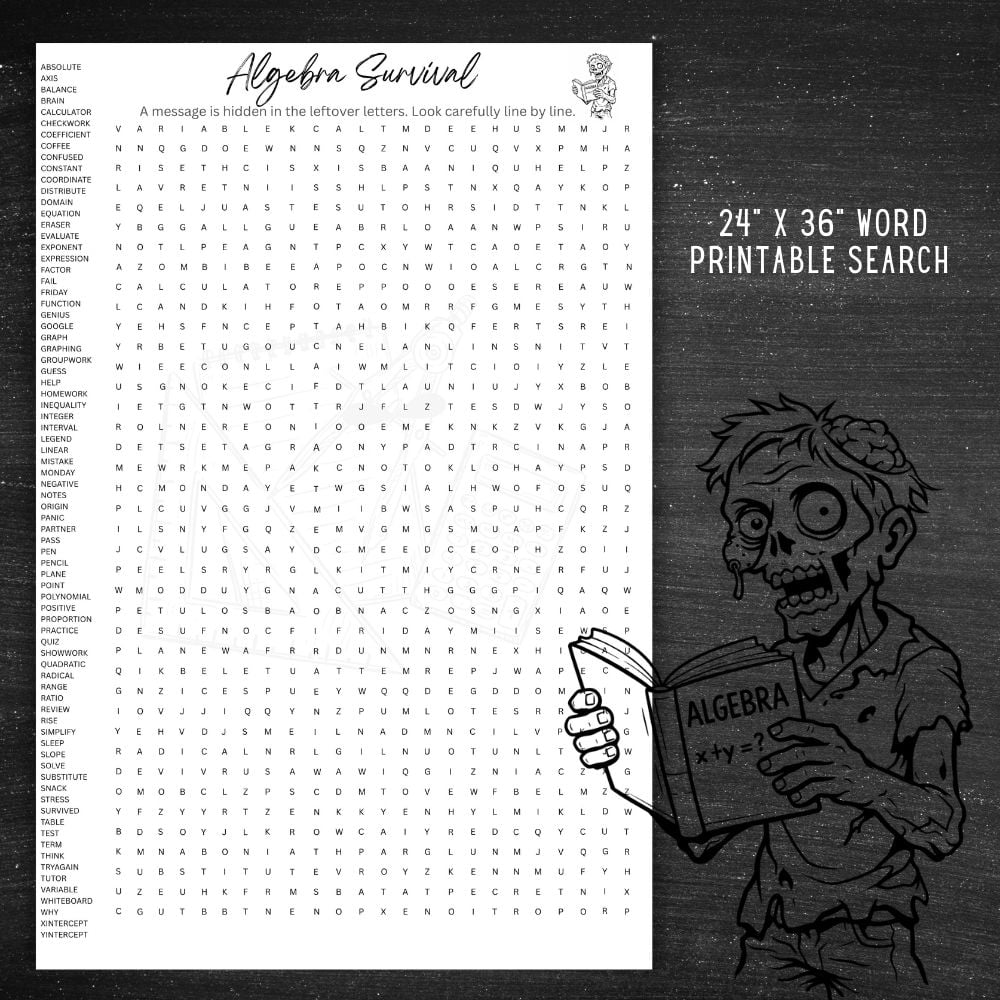 Algebra Survival
A message is hidden in the leftover letters. Look carefully line by line.
ABSOLUTE
AXIS
BALANCE
BRAIN
CALCULATOR
CHECKWORK
COEFFICIENT
COFFEE
CONFUSED
CONSTANT
COORDINATE
DISTRIBUTE
DOMAIN
EQUATION
ERASER
EVALUATE
EXPONENT
EXPRESSION
FACTOR
FAIL
FRIDAY
FUNCTION
GENIUS
GOOGLE
GRAPH
GRAPHING
GROUPWORK
GUESS
HELP
HOMEWORK
INEQUALITY
INTEGER
INTERVAL
LEGEND
LINEAR
MISTAKE
MONDAY
NEGATIVE
NOTES
ORIGIN
PANIC
PARTNER
PASS
PEN
PENCIL
PLANE
POINT
POLYNOMIAL
POSITIVE
PROPORTION
PRACTICE
QUIZ
SHOWWORK
QUADRATIC
RADICAL
RANGE
RATIO
REVIEW
RISE
SIMPLIFY
SLEEP
SLOPE
SOLVE
SUBSTITUTE
SNACK
STRESS
SURVIVED
TABLE
TEST
TERM
THINK
TRYAGAIN
TUTOR
VARIABLE
WHITEBOARD
WHY
XINTERCEPT
YINTERCEPT
V A R I A B L E K C A L T M D E E H U S M M J R
N N Q G D O E W N N S Q Z N V C U Q V X P M H A
R I S E T H C I S X I S B A A N I Q U H E L P Z
L A V R E T N I I S S H L P S T N X Q A Y K O P
E Q E L J U A S T E S U T O H R S I D T T N K L
Y B G G A L L G U E A B R L O A A N W P S I R U
N O T L P E A G N T P C X Y W T C A O E T A O Y
A Z O M B I B E E A P O C N W I O A L C R G T N
C A L C U L A T O R E P P O O O E S E R E A U W
L C A N D K I H F O T A O M R R F G M E S Y T H
Y E H S F N C E P T A H B I K Q F E R T S R E I
Y R B E T U G O U C N E L A N L I N S N I T V T
W I E E C O N L L A I W M L I T C I O I Y Z L E
U S G N O K E C I F D T L A U N I U J Y X B O B
I E T G T N W O T T R J F L Z T E S D W J Y S O
R O L N E R E O N I O O E M E K N K Z V K G J A
D E T S E T A G R A O N Y P A D T R C I N A P R
M E W R K M E P A K C N O T O K L O H A Y P S D
H C M O N D A Y E T W G S I A L H W O F O S U Q
P L C U V G G J V M I I B W S A S P J H C Q R Z
I L S N Y F G Q Z E M V G M G S M U A P F K Z J
J C V L U G S A Y D C M E E D C E O P H Z O I I
P E E L S R Y R G L K I T M I Y C R N E R F U J
W M O D D U Y G N A C U T T H G G G P I Q A Q W
P E T U L O S B A O B N A C Z O S N G X I A O E
D E S U F N O C F I F R I D A Y M I I S E W P
P L A N E W A F R R D U N M N R N E X H I A U
Q I K B E L E T U A T T E M R E P J W A P E C
G N Z I C E S P U E Y W Q Q D E G D D O M I N
I O V J J I Q Q Y N Z P U M L O T E S R R J
Y E H V D J S M E I L N A D M N C I L V P G
R A D I C A L N R L G I L N U O T U N L T W
D E V I V R U S A W A W I Q G I Z N I A C Z G
O M O B C L Z P S C D M T O V E W F B E L M Z Z
Y F Z Y Y R T Z E N K K Y E N H Y L M I K L D W
B D S O Y J L K R O W C A I Y R E D C Q Y C U T
K M N A B O N I A T H P A R G L U N M J V Q G R
S U B S T I T U T E V R O Y Z K E N N M U F Y H
U Z E U H K F R M S B A T A T P E C R E T N I X
C G U T B B T N E N O P X E N O I T R O P O R P
24" X 36" WORD
PRINTABLE SEARCH
ALGEBRA
x+y=?